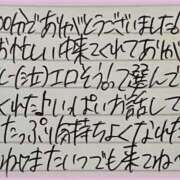 00分でありがとうございました!
お忙しい中来てくれてあり
(一社)エロそうって選んで
くれたよ!いっぱいお話して
たっぷり気持ちよくなれた
わけまたいつでも来てね